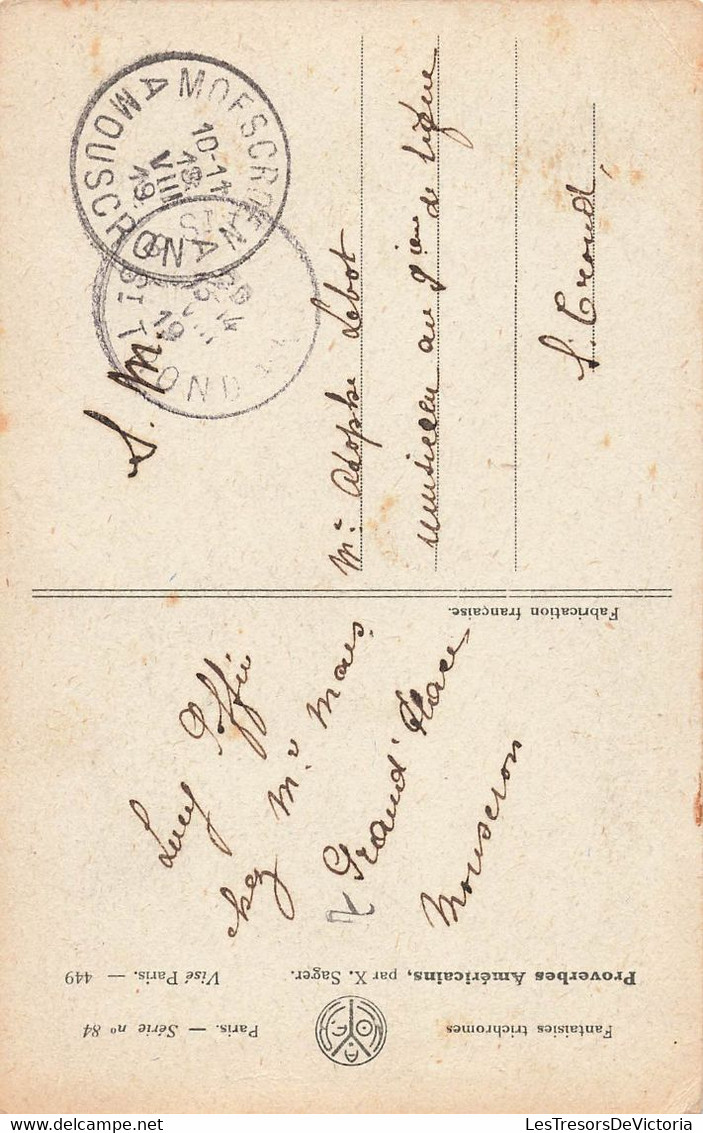 Fantaisies trichromes
Paris. — Série nº 84
Proverbes Américains, par X. Sager.
Visé Paris. — 449
Lucy
chez Mr Maes
7 Grand'Place
Mouscron
Fabrication française.
MOESCROEN
10-11
19
VIII
19
A MOUSCRON A
ST TROND
S. M.
Mr Adophe Lebot
musicien au 9ième de ligne
St. Trond
LesTresorsDeVictoria
www.delcampe.net